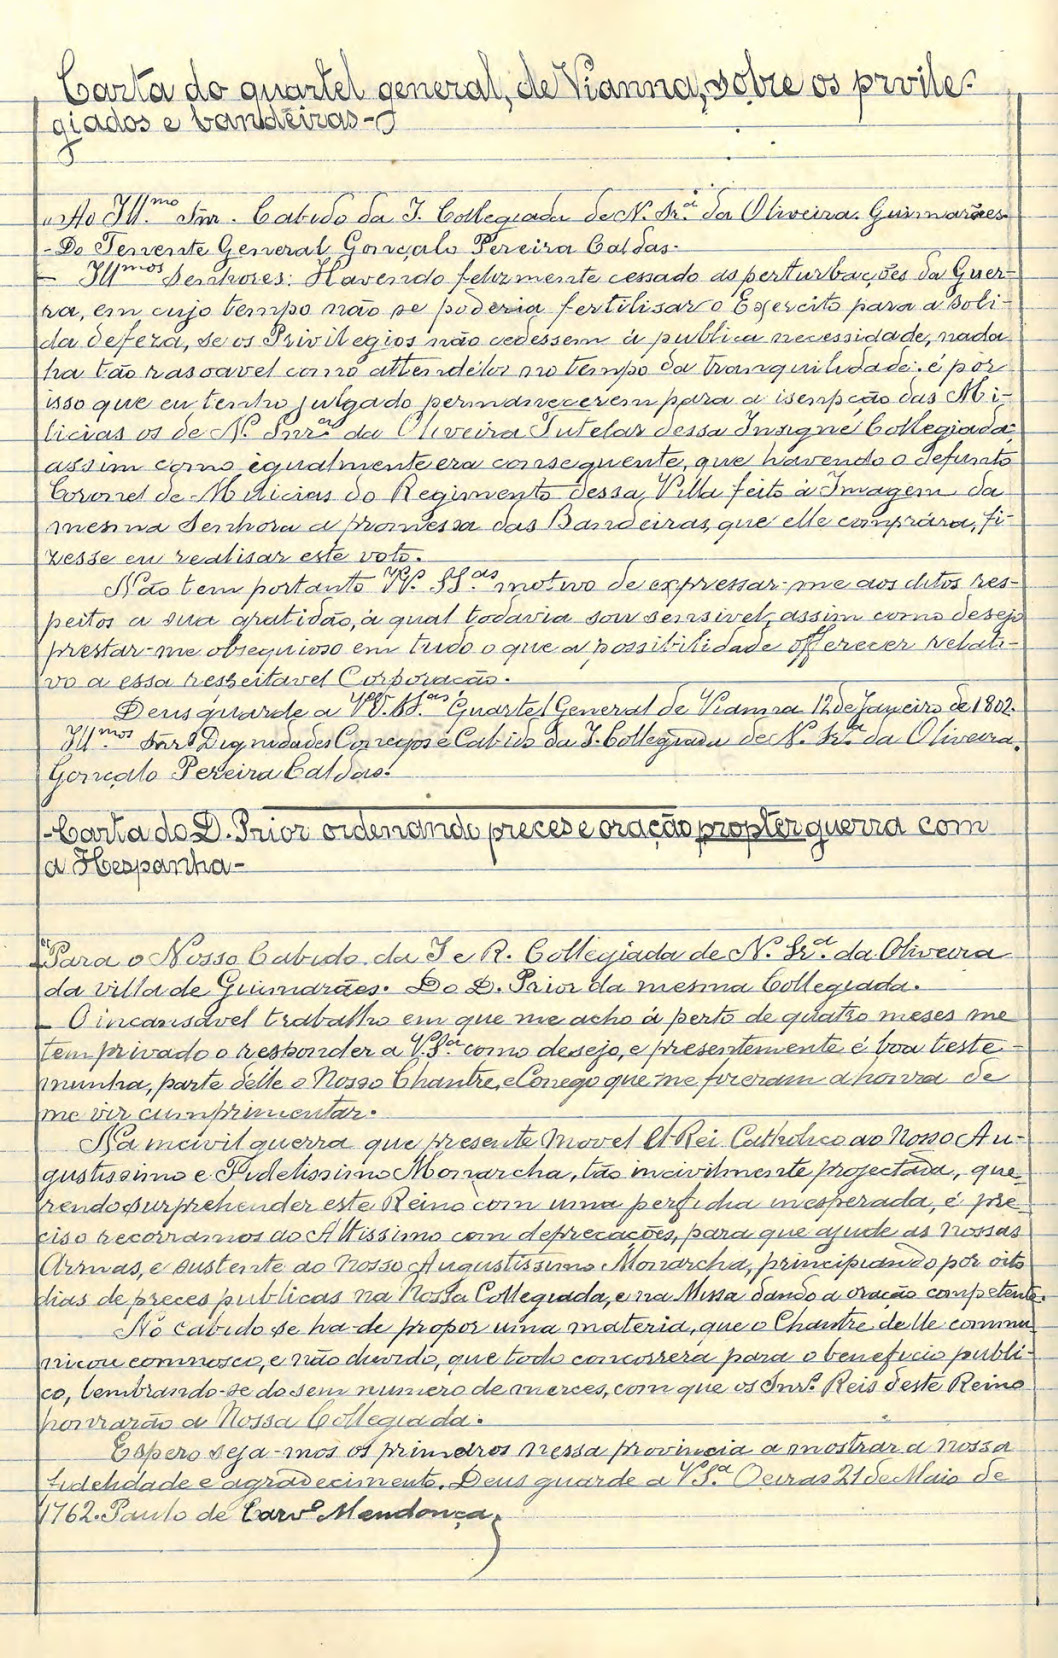 Carta do quartel general, de Vianna, sobre os prvile-
giados e bandeiras-
"Ao Ill.mo Snr. Cabido da I. Collegiada de N. Sr.a da Oliveira. Guimarães-
- Do Tenente General Gonçalo Pereira Caldas.
- Ill.mos Senhores: Havendo felizmente cessado as perturbações da Guer-
ra, em cujo tempo não se poderia fertilisar o Exercito para a soli-
da defeza, se os Privilegios não cedessem á publica necessidade, nada
ha tão rasoavel como attendêl-os no tempo da tranquilidade: é por
isso que eu tenho julgado permanecerem para a isempção das Mi-
licias os de N. Snr.a da Oliveira Tutelar dessa Insigne Collegiada;
assim como egualmente era consequente, que havendo o defunto
Coronel de Milicias do Regimento dessa Villa feito á Imagem da
mesma Senhora a promessa das Bandeiras, que elle comprára, fi-
zesse eu realisar este voto.
Não tem portanto VV. SS.as motivo de expressar-me aos ditos res-
peitos a sua gratidão, á qual todavia sou sensivel, assim como desejo
prestar-me obsequioso em tudo o que a possibilidade offerecer relati-
vo a essa respeitavel Corporação.
Deus guarde a VV. SS.as Quartel General de Vianna 12 de Janeiro de 1802.
Ill.mos Snrs Dignidades Conegos e Cabido da I. Collegiada de N. Sr.a da Oliveira.
Gonçalo Pereira Caldas.
-Carta do D. Prior ordenando preces e oração propter guerra com
a Hespanha-
"Para o Nosso Cabido da I e R. Collegiada de N. Sr.a da Oliveira
da villa de Guimarães. Do D. Prior da mesma Collegiada.
- O incansavel trabalho em que me acho á perto de quatro meses me
tem privado o responder a V.S.a como desejo, e presentemente é boa teste-
munha, parte délle o Nosso Chantre, e Conego que me fizeram a honra de
me vir cumprimentar.
Na incivil guerra que presente movel El-Rei Catholico ao Nosso Au-
gustissimo e Fidelissimo Monarcha, tão incivilmente projectada, que-
rendo surprehender este Reino com uma perfidia inesperada, é pre-
ciso recorramos ao Altissimo com deprecações, para que ajude as nossas
Armas, e sustente ao Nosso Augustissimo Monarcha, principiando por oito
dias de preces publicas na Nossa Collegiada, e na Missa dando a oração competente.
No cabido se ha-de propor uma materia, que o Chantre delle commu-
nicou commosco, e não duvido, que todo concorrera para o beneficio publi-
co, lembrando-se do sem numero de merces, com que os Snr.s Reis deste Reino
honrarão a Nossa Collegiada.
Espero seja-mos os primeiros nessa provincia a mostrar a nossa
fidelidade e agradecimento. Deus guarde a V.S.a Oeiras 21 de Maio de
1762. Paulo de Carv.o Mendonça.